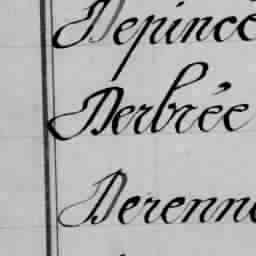 Depincé
Derbrée
Derenne